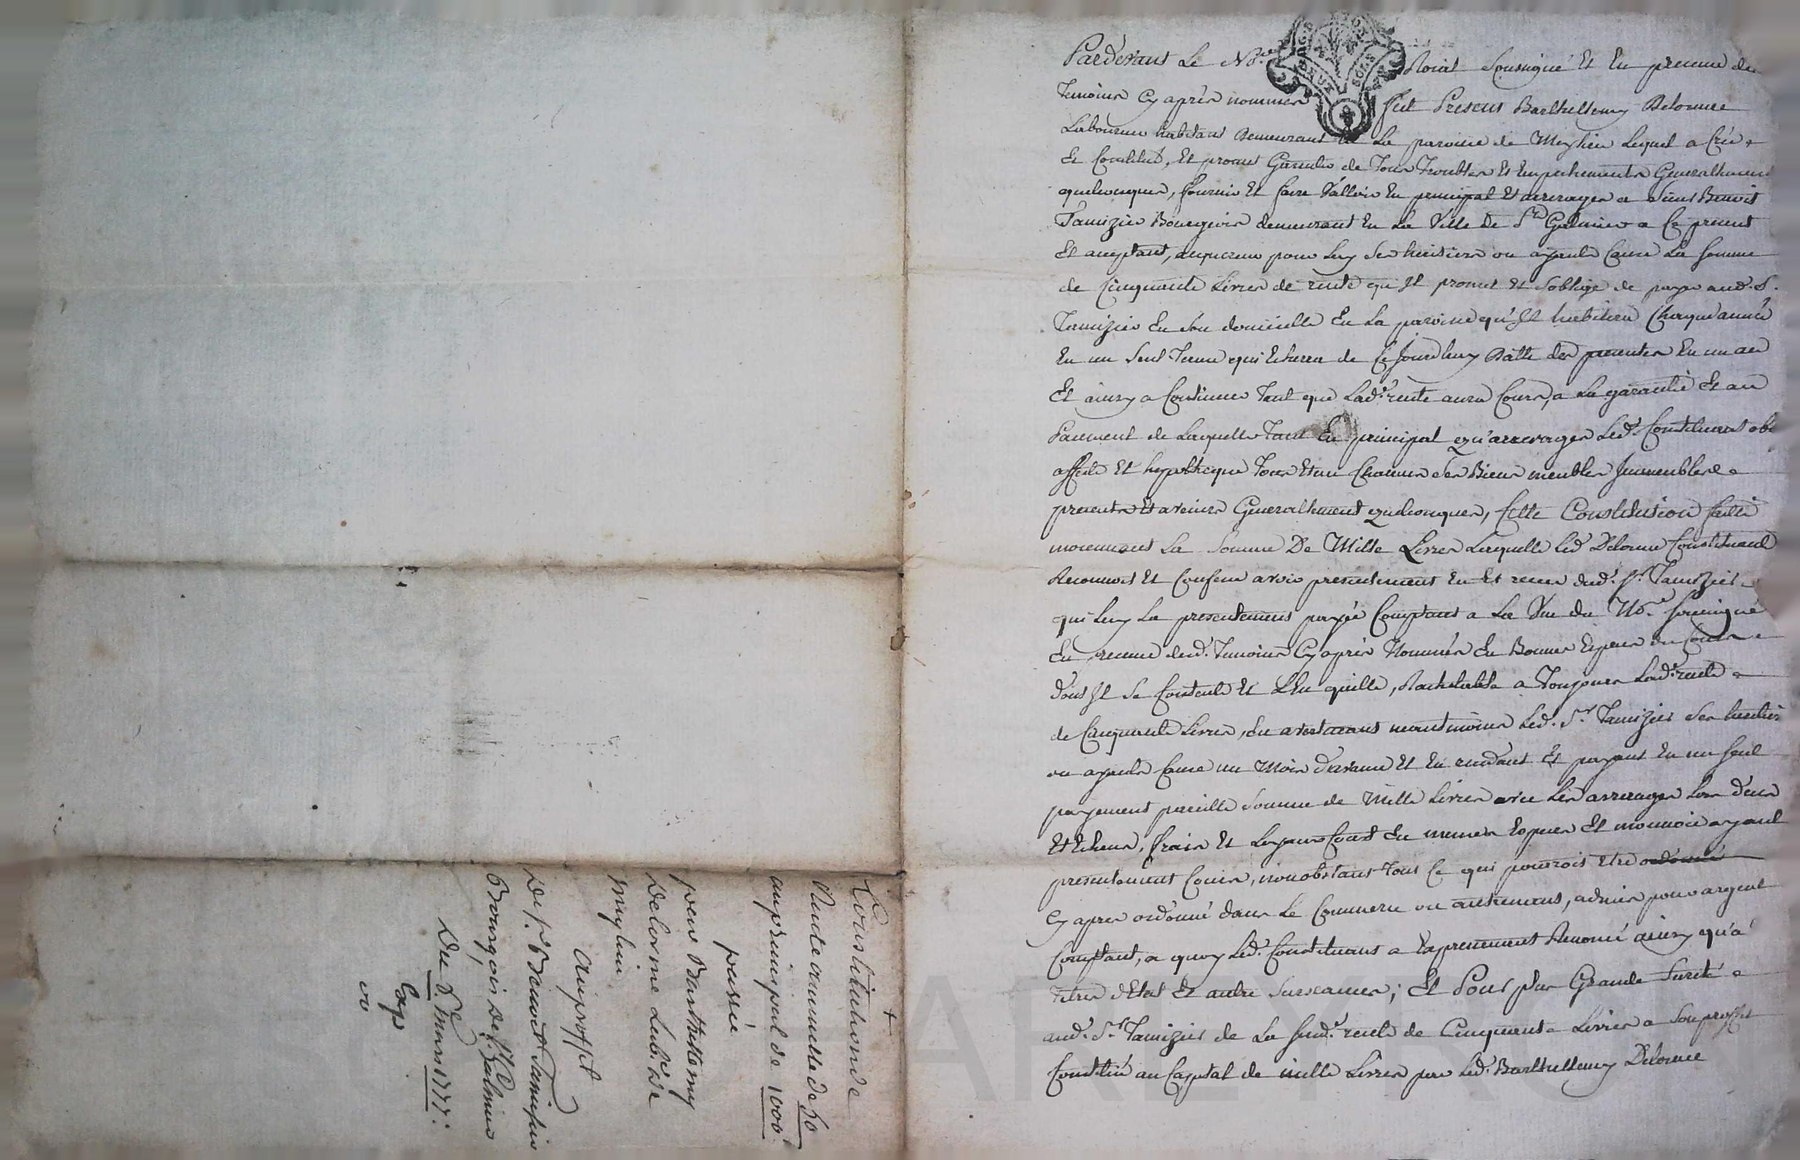 Pardevant Le No.re Roial Soussigné Et En presence des
Temoins Cy après nommés fut Present Barthellemy Delorme
Laboureur habitant Demeurant La paroisse de Meylieu Lequel a Créé
Et Constitué, Et promet Garentir de Tous Troubles Et Empechements Generallement
quelconques, fournir Et faire Valloir En principal Et arrerages a Sieur Benoit
Tamizier Bourgeois demeurant En La Ville de St Galmier a Ce present
Et aceptant, acquereur pour Luy Ses heritiers ou ayants Cause La Somme
de Cinquante Livres de rente qu'Il promet Et s'oblige de payer aud. S.
Tamizier En Son domicille En La paroisse qu'Il habitera Chaque année
En un Seul Terme qui Echerra de Ce Jourdhuy Datte des presentes En un an
Et ainsy a Continuer Tant que Lad.e rente aura Cours, a La garantie Et au
Paiement de Laquelle Tant En principal qu'arrerages Led. Constituant
affecte Et hypotheque Tous Et un Chacuns Ses Biens meubles Immeubles
presents Et avenirs Generallement quelconques, Cette Constitution faitte
moiennant La Somme De Mille Livres Laquelle Led. Delorme Constituant
Reconnoit Et Confesse avoir presentement Eu Et recue dud. Sr. Tamizier
qui Luy La presentement payée Comptant a La Vue du No.re soussigné
En presence desd. Temoins Cy après Nommés En Bonnes Especes du Cours
dont Il Se Contente Et L'En quitte, Rachetable a Toujours Lad.e rente
de Cinquante Livres, En avertissant neantmoins Led. Sr Tamizier Ses heritiers
ou ayants Cause un Mois d'avance Et En rendant Et payant En un Seul
payement pareille Somme de Mille Livres avec Les arrerages Lors deus
Et Echeus, frais Et Loyaux Couts En memes Espeses Et monnoie ayant
presentement Cours, nonobstant Tout Ce qui pourroit Etre ordonné
Cy apres ordonné dans Le Commerce ou autrement, admis pour argent
Comptant, a quoy Led. Constituant a Expressement Renoncé ainsy qu'à
Lettres d'Etat Et autre Surceances; Et Pour plus Grande Sureté
aud. Sr Tamizier de La susd.e rente de Cinquante Livres a Son proffit
Constitué au Capital de mille Livres par Led. Barthellemy Delorme
Constitution de
Rente annuelle de 50
au principal de 1000
passée
par Barthellemy
Delorme Lab.r de
Meylieu
au proffit
De Sr. Benoit Tamizier
Bourgeois de St Galmier
Du 8e. mars 1777.